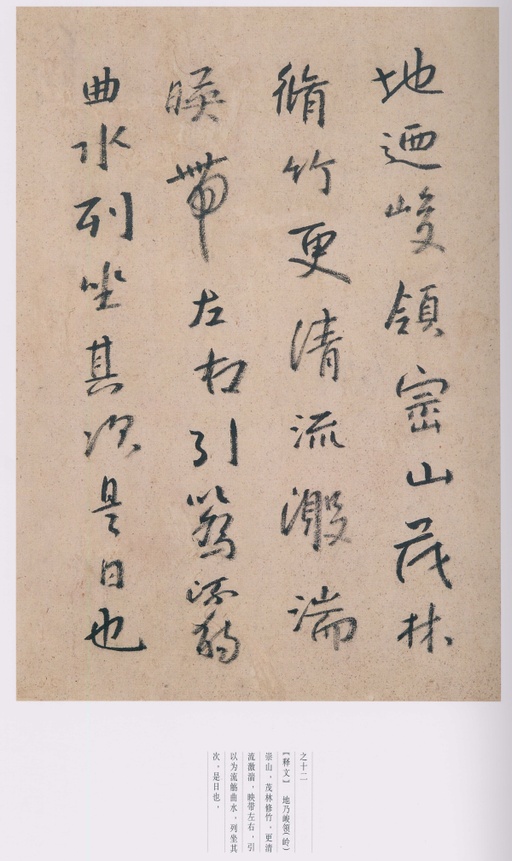 地迺峻領崈山茂林
脩竹更清流激湍
暎帶左右引以為流觴
曲水列坐其次是日也
之十二
【释文】 地乃峻领(岭)
崇山，茂林修竹，更清
流激湍，映带左右，引
以为流觞曲水，列坐其
次。是日也，